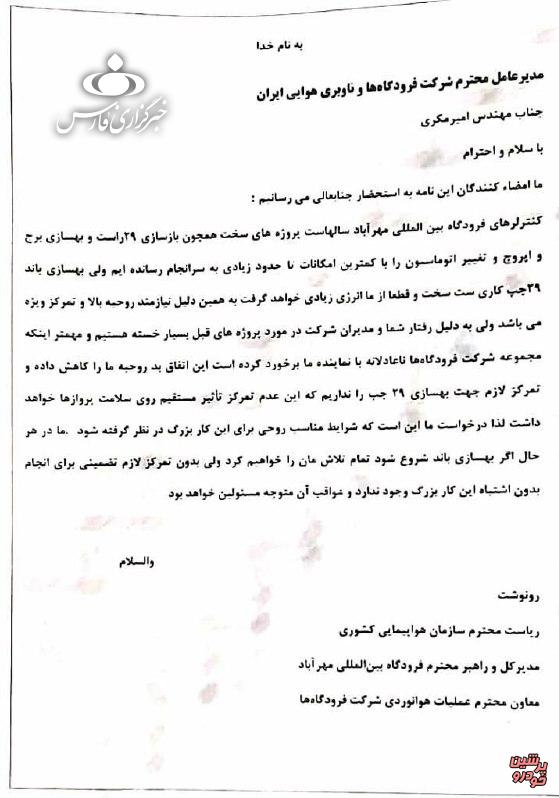 به نام خدا
خبرگزاری فارس
مدیرعامل محترم شرکت فرودگاه‌ها و ناوبری هوایی ایران
جناب مهندس امیرمکری
با سلام و احترام
ما امضاء کنندگان این نامه به استحضار جنابعالی می رسانیم :
کنترلرهای فرودگاه بین المللی مهرآباد سالهاست پروژه های سخت همچون بازسازی ۲۹راست و بهسازی برج
و اپروچ و تغییر اتوماسون را با کمترین امکانات تا حدود زیادی به سرانجام رسانده ایم ولی بهسازی باند
۲۹چپ کاری ست سخت و قطعا از ما انرژی زیادی خواهد گرفت به همین دلیل نیازمند روحیه بالا و تمرکز ویژه
می باشد ولی به دلیل رفتار شما و مدیران شرکت در مورد پروژه های قبل بسیار خسته هستیم و مهمتر اینکه
مجموعه شرکت فرودگاه‌ها ناعادلانه با نماینده ما برخورد کرده است این اتفاق بد روحیه ما را کاهش داده و
تمرکز لازم جهت بهسازی ۲۹ چپ را نداریم که این عدم تمرکز تأثیر مستقیم روی سلامت پروازها خواهد
داشت لذا درخواست ما این است که شرایط مناسب روحی برای این کار بزرگ در نظر گرفته شود .ما در هر
حال اگر بهسازی باند شروع شود تمام تلاش مان را خواهیم کرد ولی بدون تمرکز لازم تضمینی برای انجام
بدون اشتباه این کار بزرگ وجود ندارد و عواقب آن متوجه مسئولین خواهد بود
والسلام
رونوشت
ریاست محترم سازمان هواپیمایی کشوری
مدیرکل و راهبر محترم فرودگاه بین‌المللی مهرآباد
معاون محترم عملیات هوانوردی شرکت فرودگاه‌ها
پرشین
خودرو